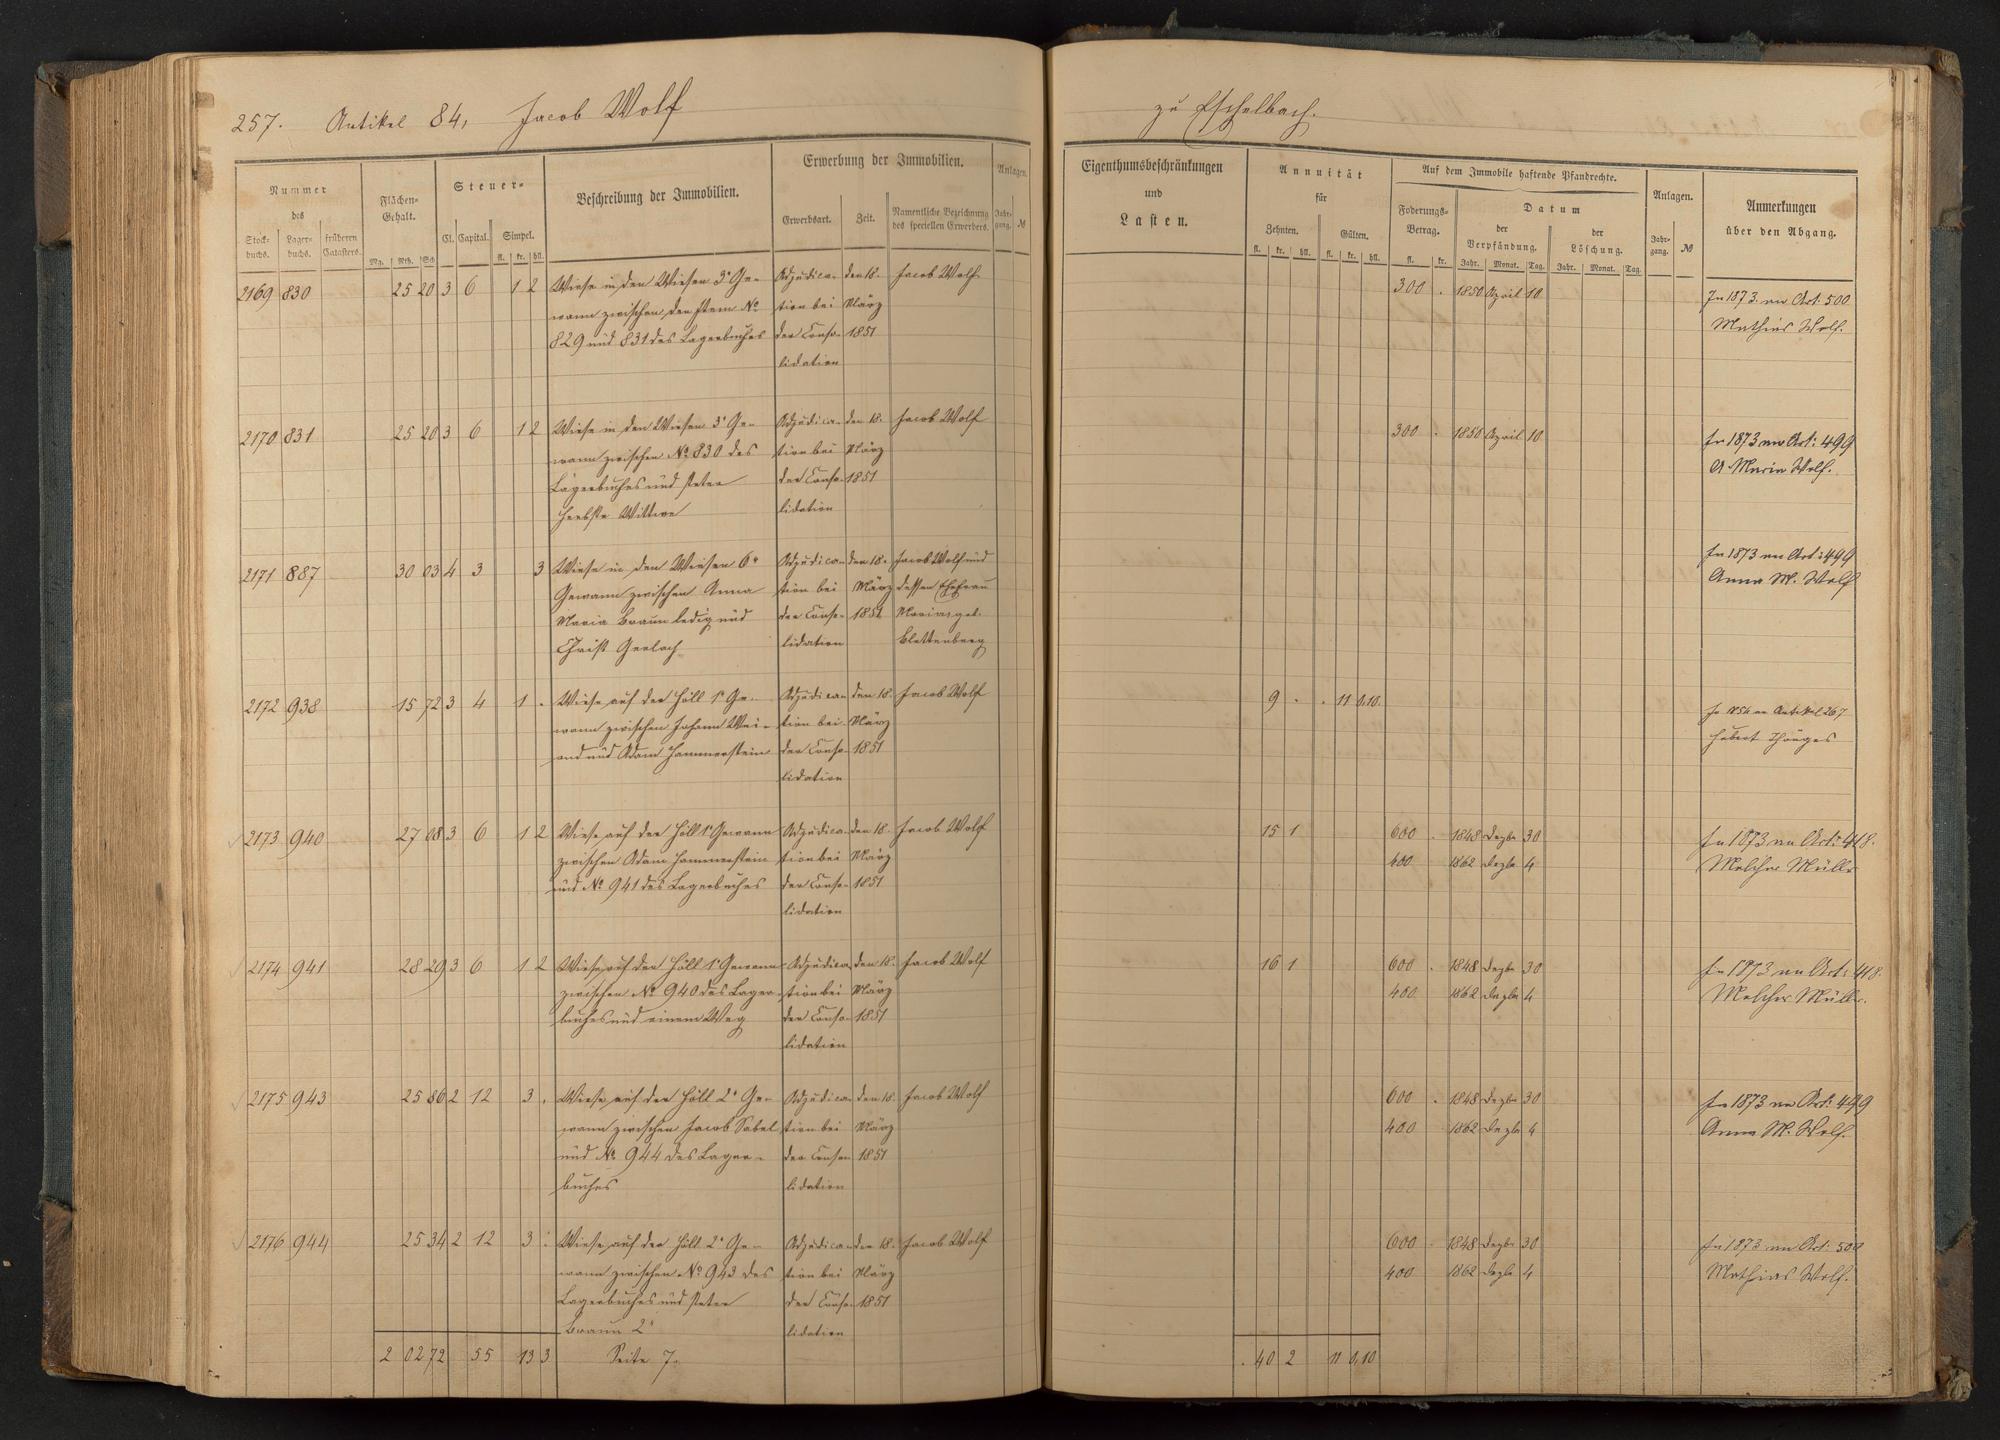 257. Artikel 84, Jacob Wolf zu Eschelbach.
Nummer des
Stock-buchs. Lager-buchs. früheren Catasters.
Flächen-Gehalt.
Mg. Rth. Sch
Steuer-
Cl. Capital. Simpel.
fl. kr. hll.
Beschreibung der Immobilien.
Erwerbung der Immobilien.
Erwerbsart. Zeit. Namentliche Bezeichnung des speciellen Erwerbers.
Anlagen.
Jahr-gang. №
Eigenthumsbeschränkungen
und
Lasten.
Annuität
für
Zehnten. Gülten.
fl. kr. hll. fl. kr. hll.
Auf dem Immobile haftende Pfandrechte.
Foderungs-Betrag.
fl. kr.
Datum
der Verpfändung. der Löschung.
Jahr. Monat. Tag. Jahr. Monat. Tag.
Anlagen.
Jahr-gang. №
Anmerkungen
über den Abgang.
2169 830 25 20 3 6 1 2 Wiese in den Wiesen 3r Ge- Adjudica- den 18. Jacob Wolf 300 . 1850 April 10 In 1873 an Art: 500
wann zwischen den Item No tion bei März Mathias Wolf.
829 und 831 des Lagerbuches der Conso- 1851
lidation
2170 831 25 20 3 6 1 2 Wiese in den Wiesen 3r Ge- Adjudica- den 18. Jacob Wolf 300 . 1850 April 10 In 1873 an Art: 499
wann zwischen No 830 des tion bei März A Maria Wolf.
Lagerbuches und Peter der Conso- 1851
Herbste Wittwe lidation
2171 887 30 03 4 3 3 Wiese in den Wiesen 6r Adjudica- den 18. Jacob Wolf und In 1873 an Art: 499
Gewann zwischen Anna tion bei März dessen Ehefrau Anna M. Wolf
Maria Braun ledig und der Conso- 1851 Maria geb.
Christ Gerlach lidation Blettenberg
2172 938 15 72 3 4 1 . Wiese auf der Höll 1r Ge- Adjudica- den 18. Jacob Wolf 9 . . 11 0,10 Artikel 267
wann zwischen Johann Wei- tion bei März Hubert
and und Adam Hammerstein der Conso- 1851
lidation
2173 940 27 08 3 6 1 2 Wiese auf der Höll 1r Gewann Adjudica- den 18. Jacob Wolf 15 1 600 . 1848 Dezbr 30 In 1873 an Art: 418.
zwischen Adam Hammerstein tion bei März 400 1862 Dezbr 4 Melchior Müller
und No 941 des Lagerbuches der Conso- 1851
lidation
2174 941 28 29 3 6 1 2 Wiese auf der Höll 1r Gewann Adjudica- den 18. Jacob Wolf 16 1 600 . 1848 Dezbr 30 In 1873 an Art: 418.
zwischen No 940 des Lager- tion bei März 400 1862 Dezbr 4 Melchior Müller.
buches und einem Weg der Conso- 1851
lidation
2175 943 25 86 2 12 3 . Wiese auf der Höll 2r Ge- Adjudica- den 18. Jacob Wolf 600 . 1848 Dezbr 30 In 1873 an Art: 499
wann zwischen Jacob Sabel tion bei März 400 1862 Dezbr 4 Anna M. Wolf.
und No 944 des Lager- der Conso- 1851
buches lidation
2176 944 25 34 2 12 3 . Wiese auf der Höll 2r Ge- Adjudica- den 18. Jacob Wolf 600 . 1848 Dezbr 30 In 1873 an Art: 500
wann zwischen No 943 des tion bei März 400 1862 Dezbr 4 Mathias Wolf.
Lagerbuches und Peter der Conso- 1851
Braun 2r lidation
2 02 72 55 13 3 Seite 7. . 40 2 11 0,10